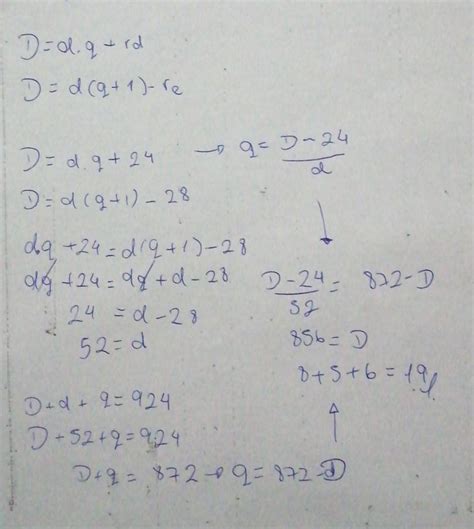 D=d.q+rd
D=d(q+1)-re
D=d.q+24 → q=D-24/d
D=d(q+1)-28
dq+24=d(q+1)-28
dq+24=dq+d-28
24=d-28
52=d
D+d+q=924
D+52+q=924
D+q=872→q=872-D
D-24/52=872-D
856=D
8+5+6=19